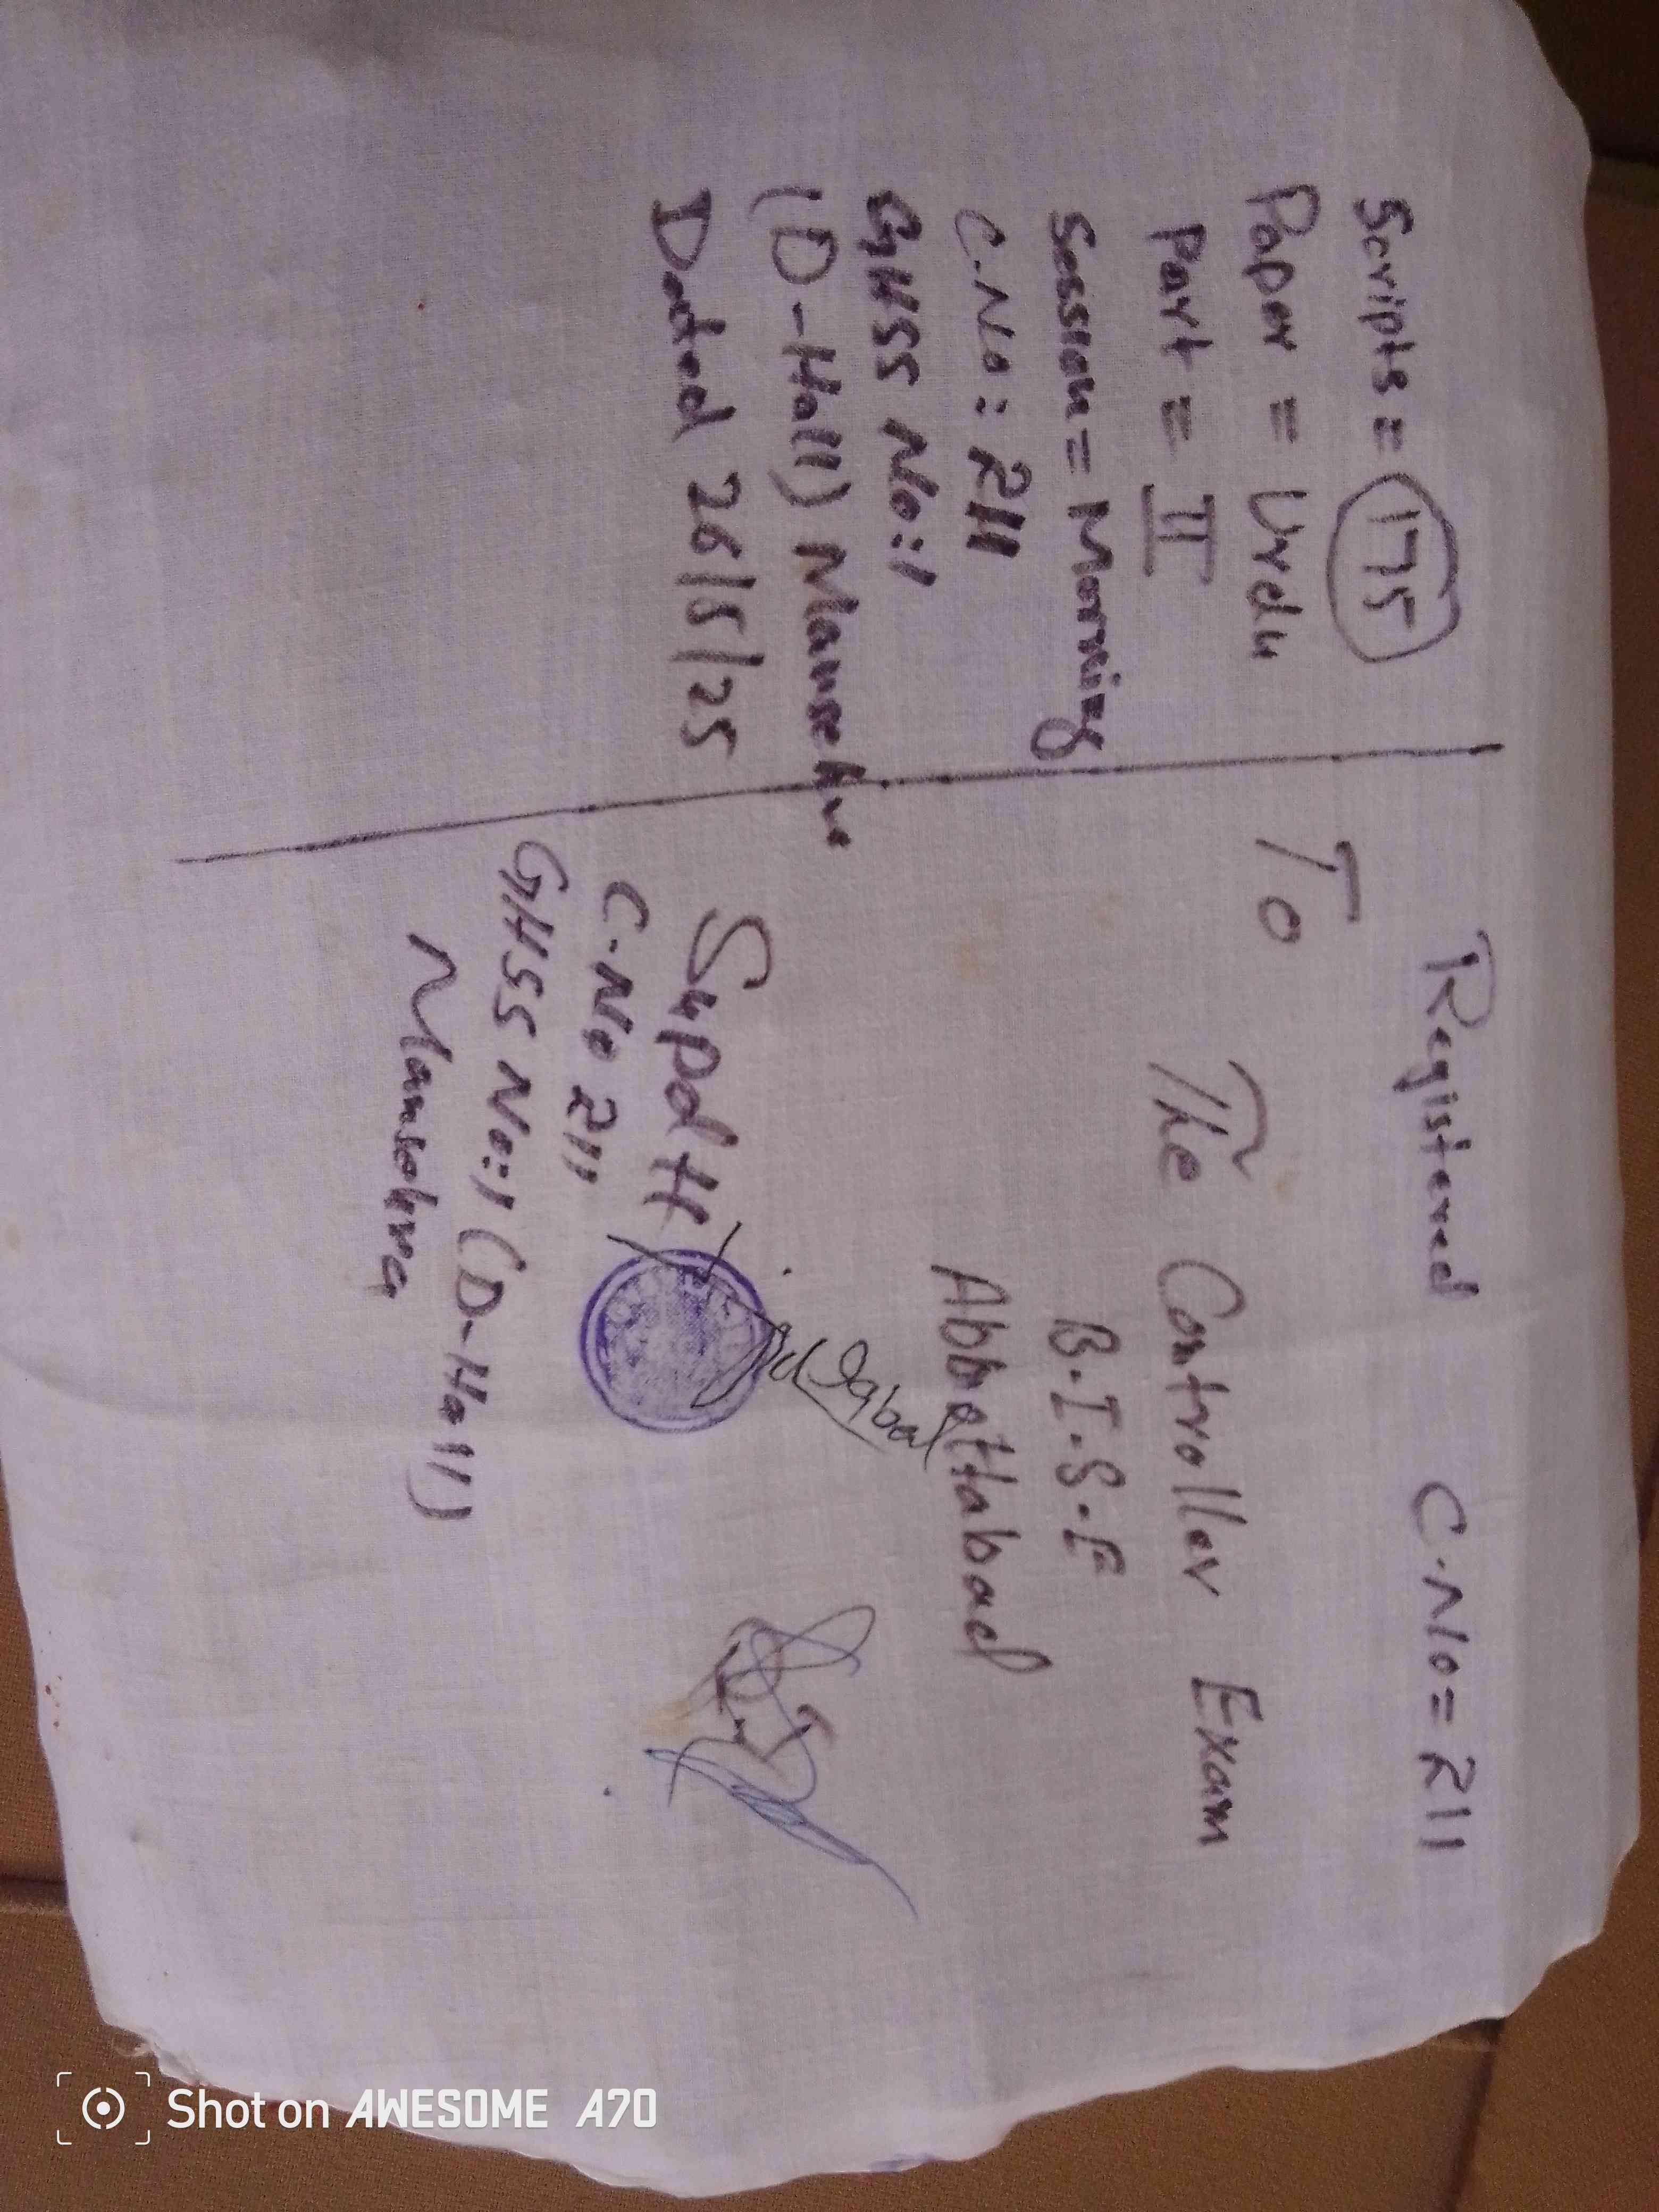 Registered C.No = 211
Scripts = 175
Paper = Urdu
Part = II
Session = Morning
C.No: 211
GHSS No:1
(D-Hall) Mansehra
Dated 26/5/25
To
The Controller Exam
B.I.S.E
Abbottabad
Supdtt
Iqbal
C.No 211
GHSS No:1 (D-Hall)
Mansehra
Shot on AWESOME A70